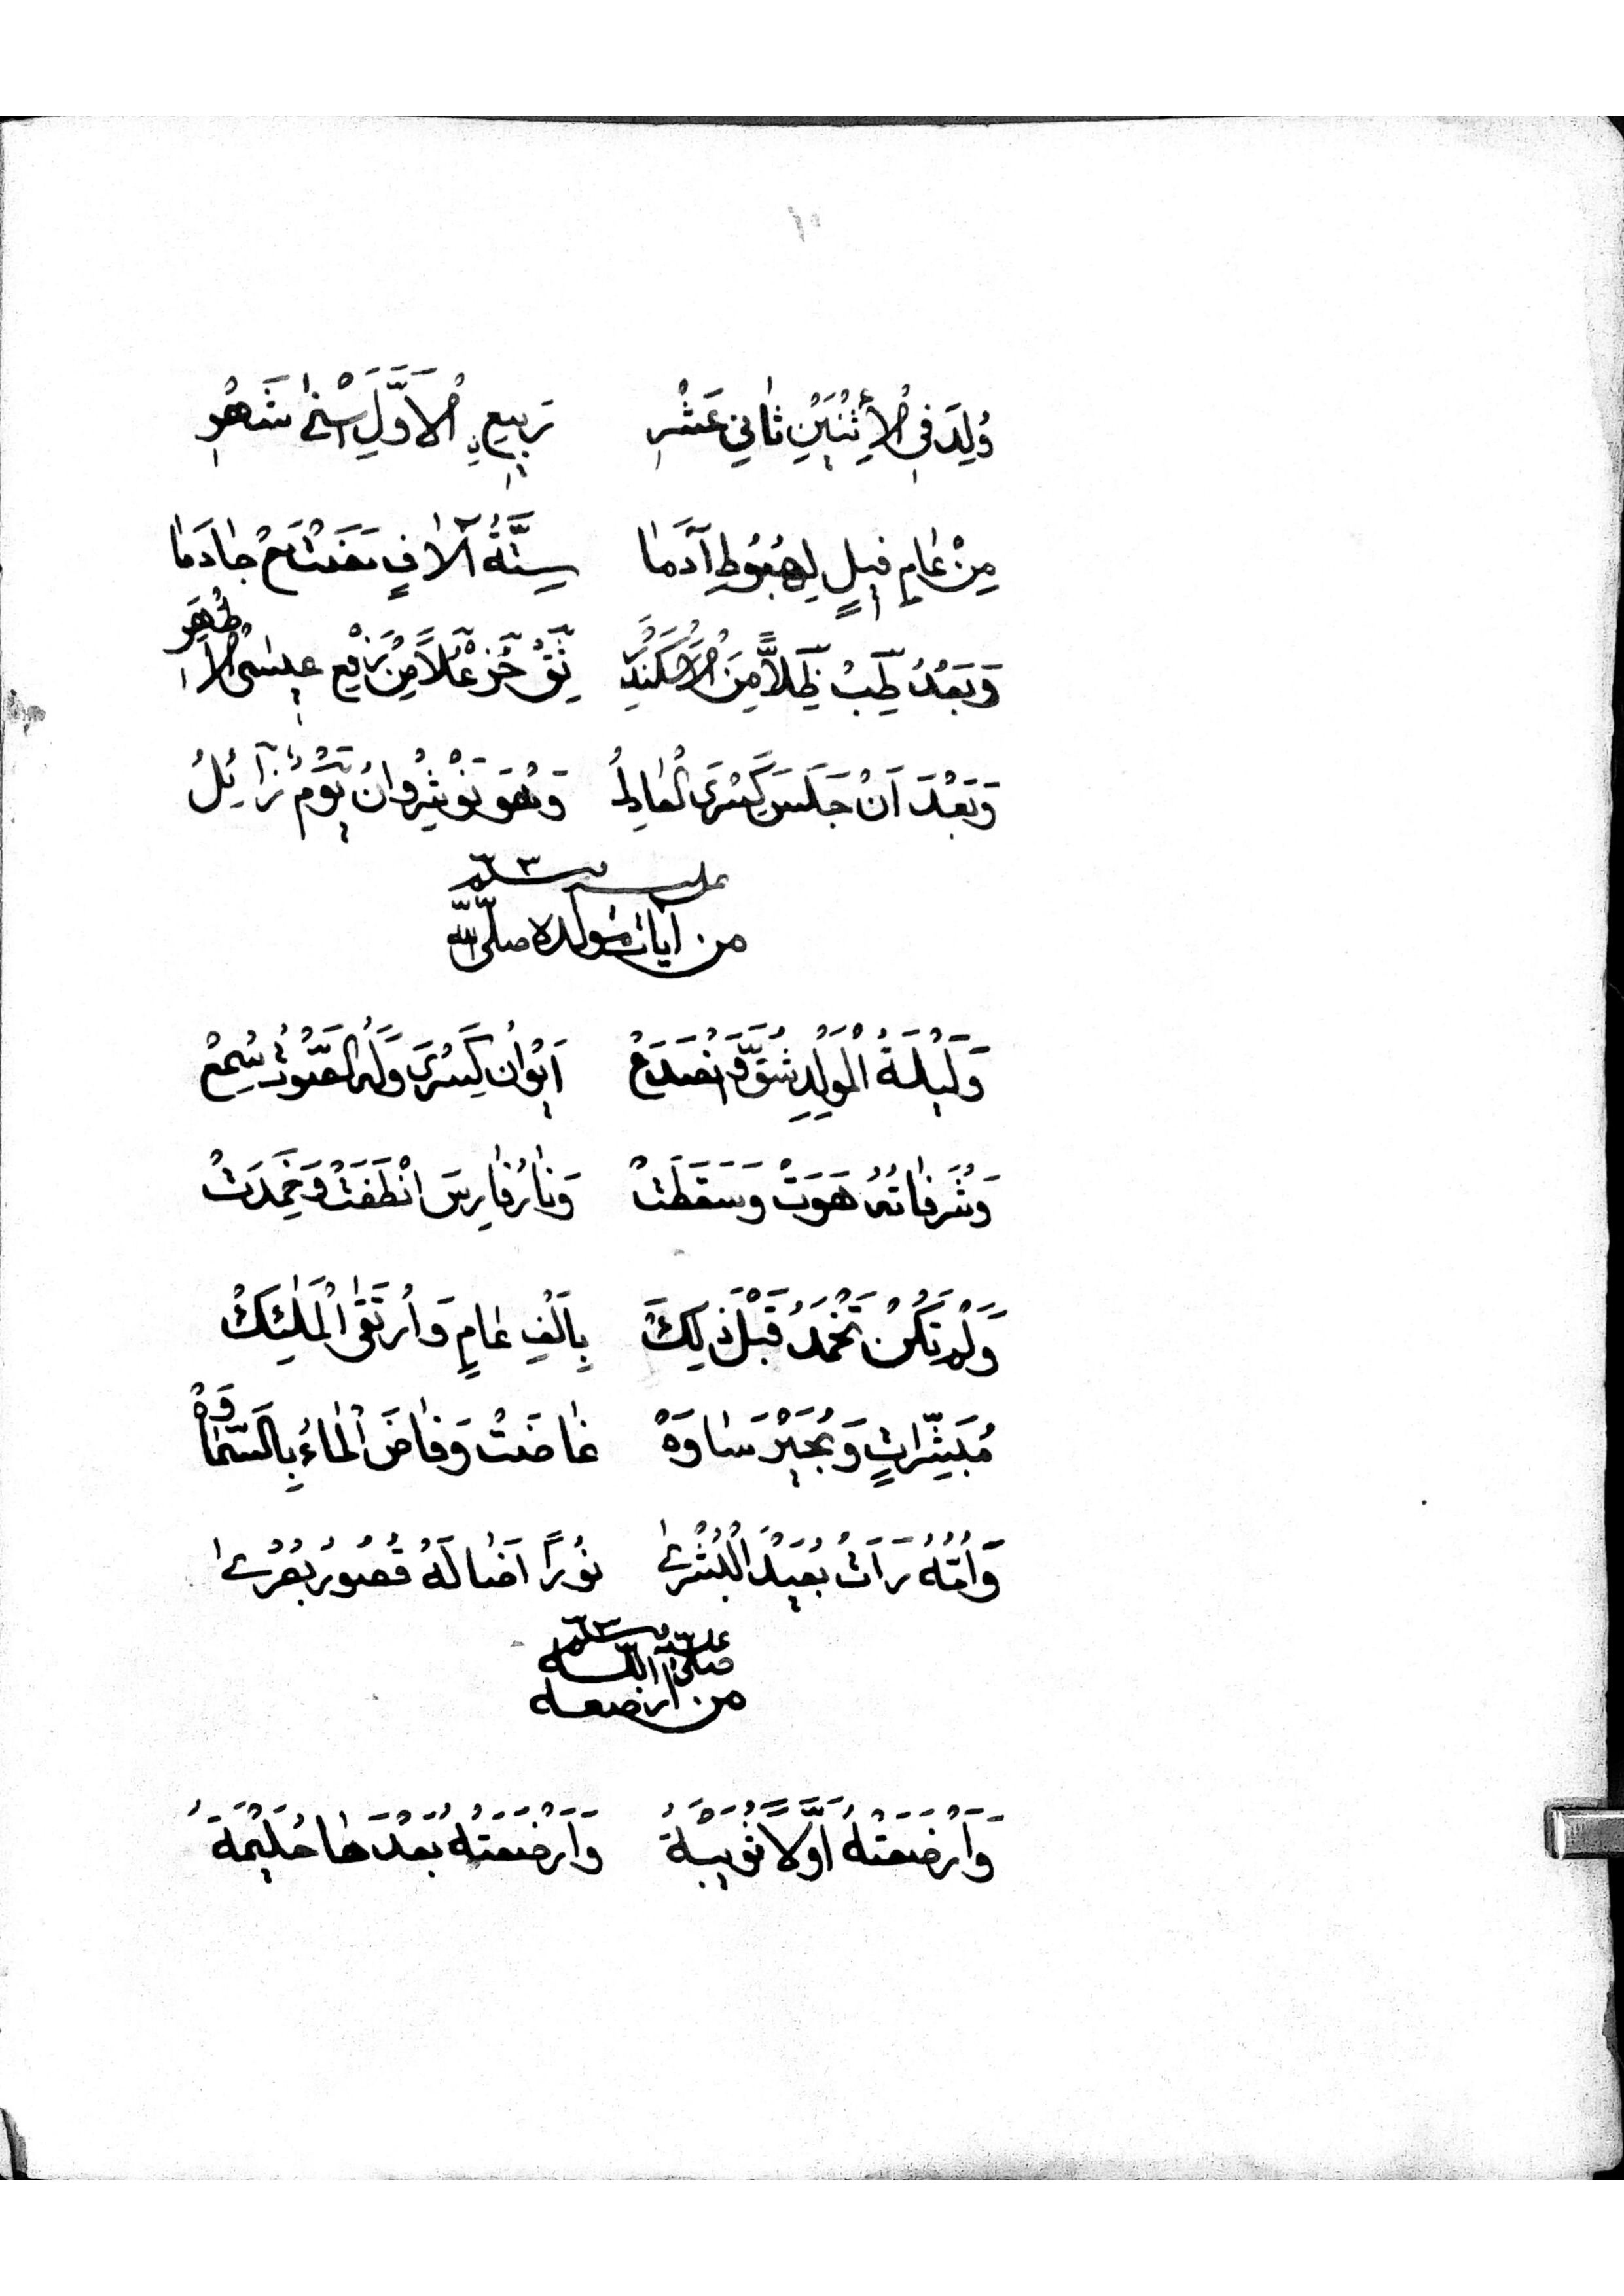 وُلِدَ فِي الْأِثْنَيْنِ ثَانِي عَشْرِ رَبِيعِ الْأَوَّلِ أَسْنَى شَهْرِ
مِنْ عَامِ فِيلٍ لِهُبُوطِ آدَمَا سِتَّةُ آلَافٍ مَضَتْ مَعْ جَادَمَا
وَبَعْدُ طِبْ ظِلًّا مِنَ الْأَسْكَنْدَرِ ثِقْ خُزْ عُلًا مِنْ رَفْعِ عِيسَى الْأَطْهَرِ
وَبَعْدَ اَنْ جَلَسَ كِسْرَى الْعَادِلُ وَهْوَ نَوْشِرْوَانُ يَوْمٌ زَائِلُ
من آيات مولده صلى الله عليه وسلم
وَلَيْلَةُ الْمَوْلِدِ شُقَّ وَانْصَدَعْ اَيْوَانُ كِسْرَى وَلَهُ الصَّوْتُ سُمِعْ
وَشُرَفَاتُهُ هَوَتْ وَسَقَطَتْ وَنَارُ فَارِسَ انْطَفَتْ وَخَمِدَتْ
وَلَمْ تَكُنْ تَخْمَدُ قَبْلَ ذٰلِكَ بِاَلْفِ عَامٍ وَارْتَقَى الْمَلَئِكْ
مُبَشِّرَاتٍ وَبُحَيْرَ سَاوَهْ غَاضَتْ وَفَاضَ الْمَاءُ بِالسَّمَاوَهْ
وَاُمُّهُ رَاَتْ بُعَيْدَ الْبُشْرَى نُورًا اَضَا لَهُ قُصُورُ بُصْرَى
من ارضعه صلى الله عليه وسلم
وَاَرْضَعَتْهُ اَوَّلًا ثُوَيْبَةُ وَاَرْضَعَتْهُ بَعْدَهَا حَلِيْمَةُ